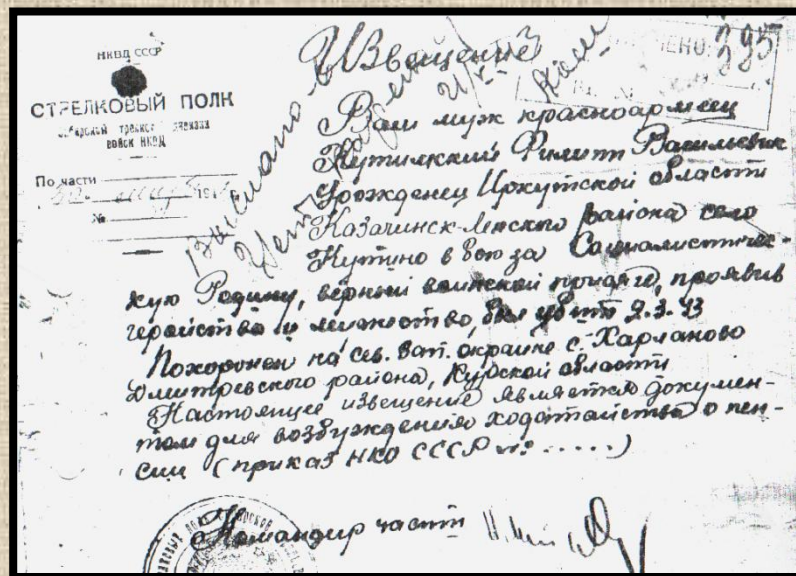 НКВД СССР
СТРЕЛКОВЫЙ ПОЛК
войск НКВД
По части
№
Извещение
Выслано в
395
Ваш муж красноармеец
Кутимский Филипп Васильевич
Урожденец Иркутской области
Казачинск-Ленского района село
Кутино в бою за Социалистичес-
кую Родину, верный воинской присяге, проявив
геройство и мужество, был убит 2.3.43
Похоронен на сев. зап. окраине с. Харланово
Дмитревского района, Курской области
Настоящее извещение является докумен-
том для возбуждения ходатайства о пен-
сии (приказ НКО СССР № .....)
Командир части